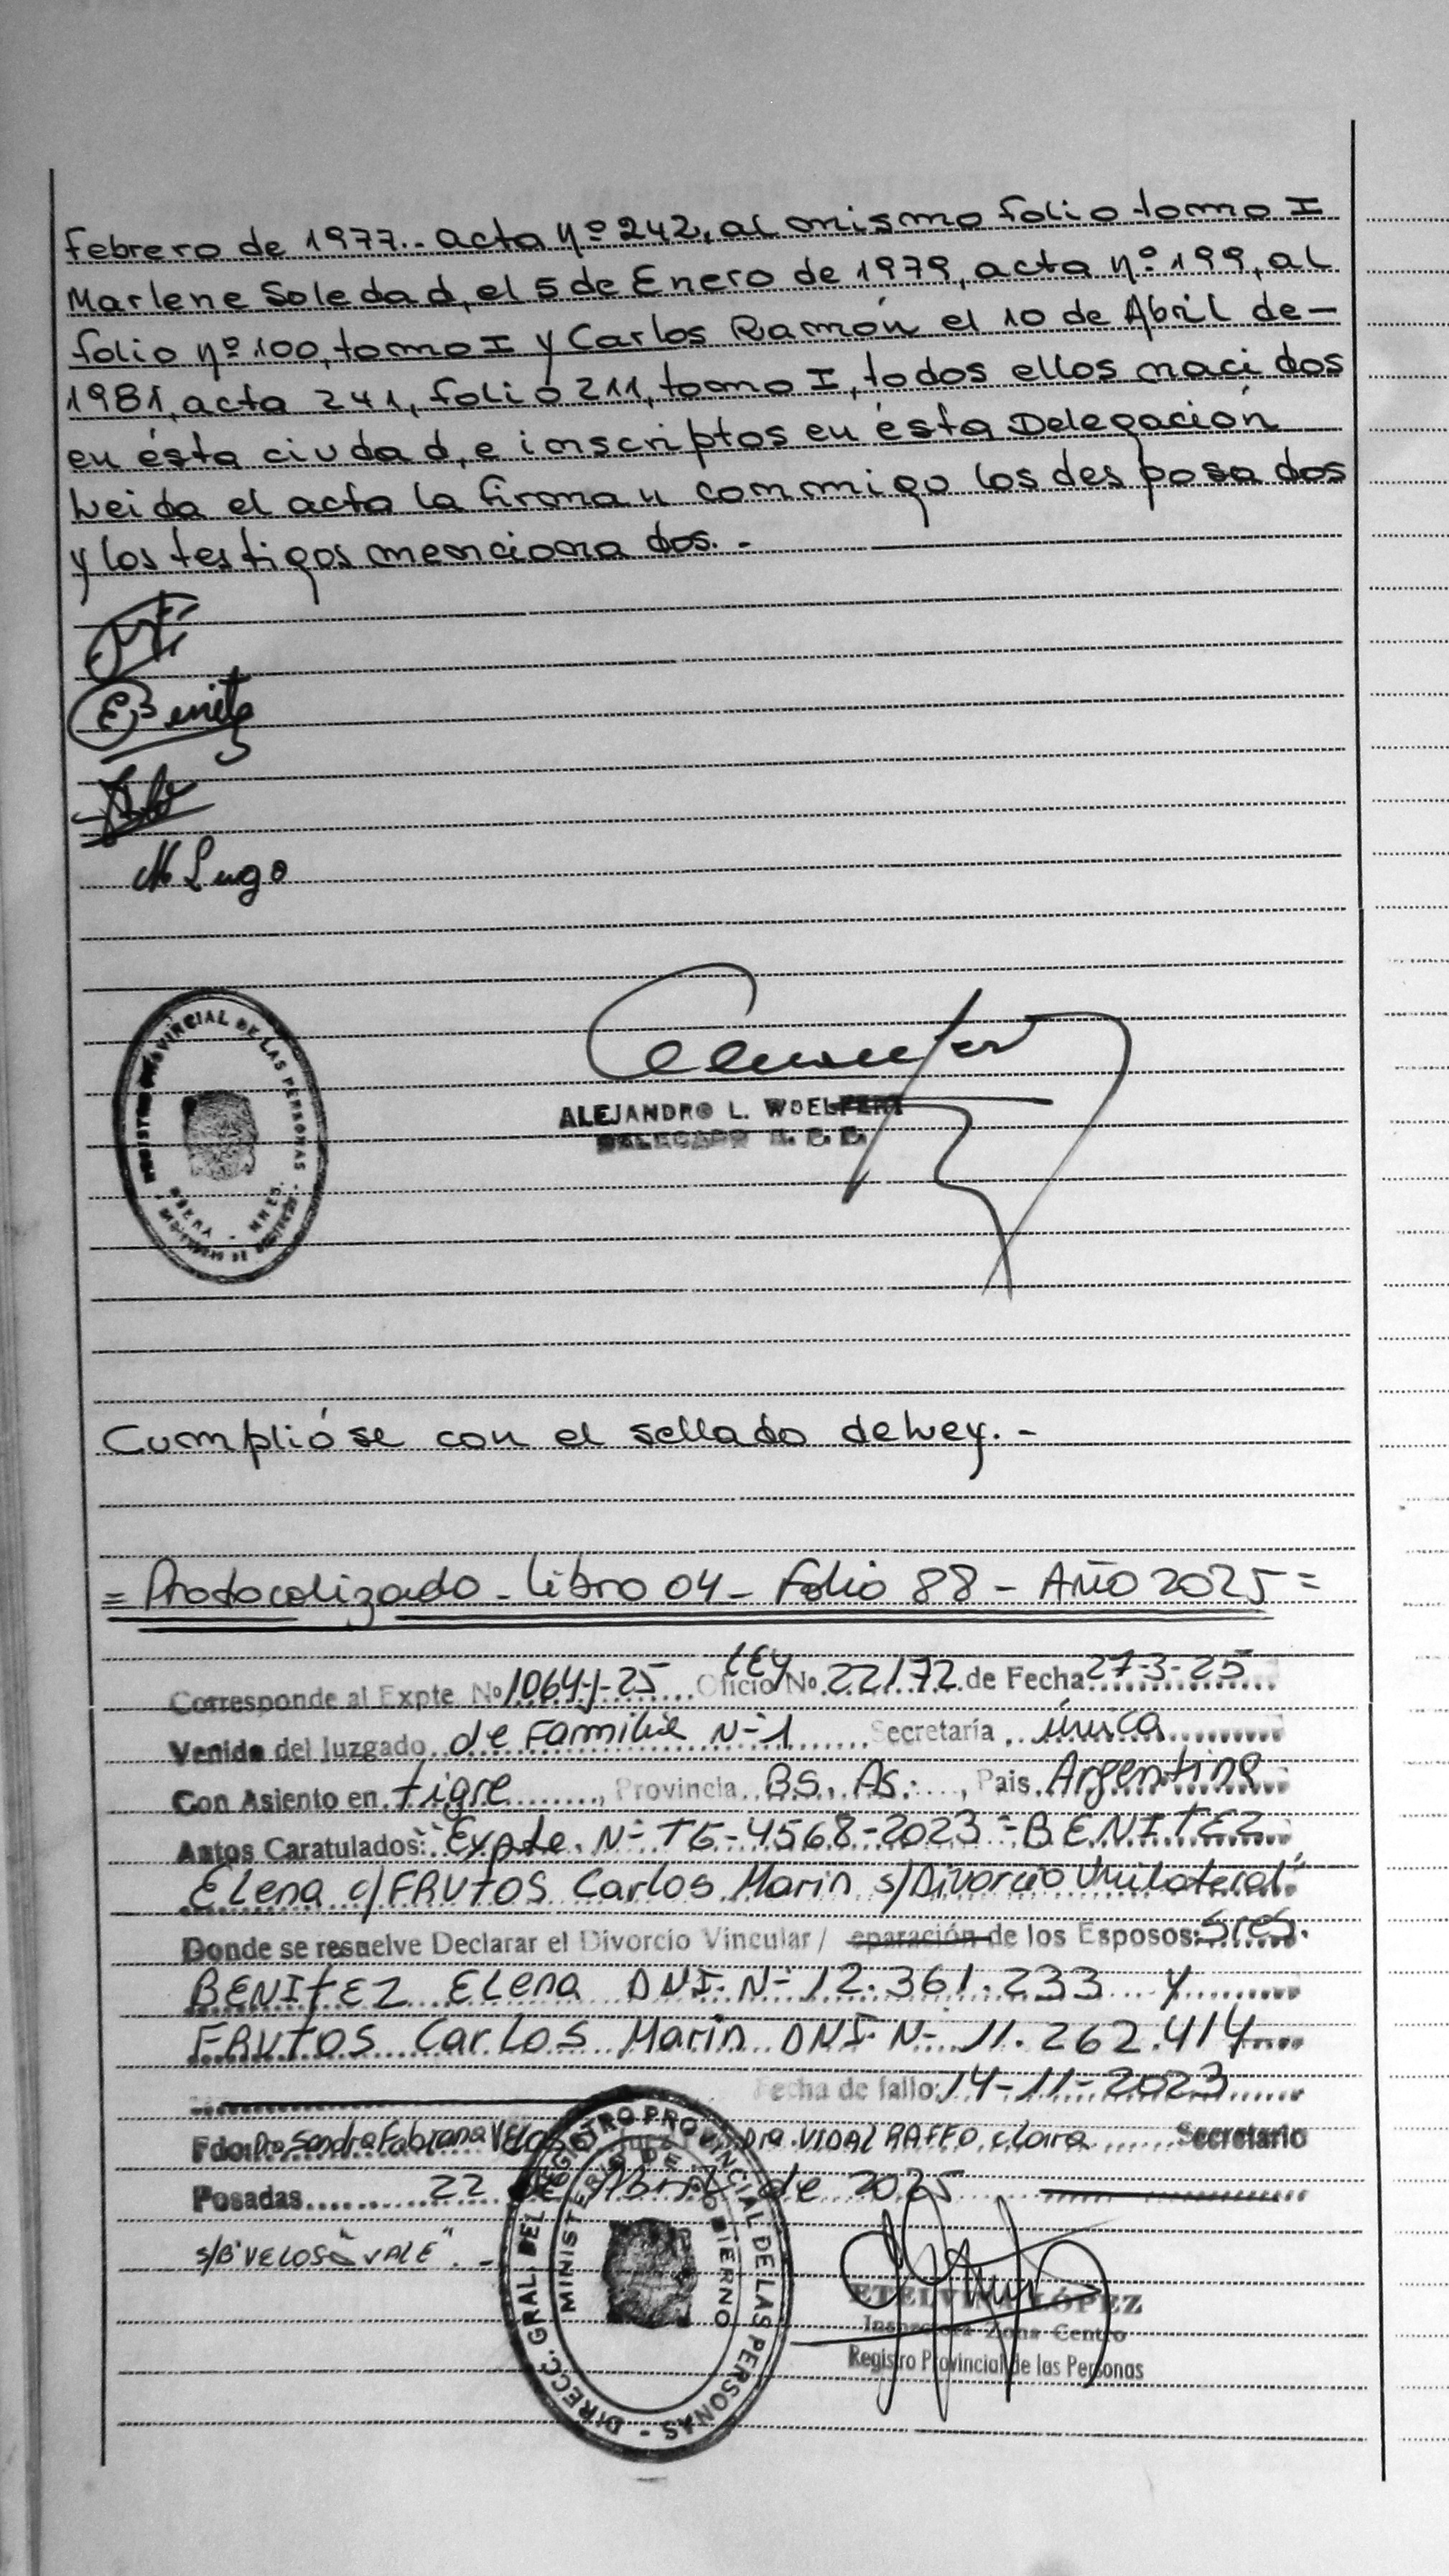 febrero de 1977.- acta nº 242, al mismo folio tomo I
Marlene Soledad, el 5 de Enero de 1979, acta nº 199, al
folio nº 100, tomo I y Carlos Ramón el 10 de Abril de-
1981, acta 241, folio 211, tomo I, todos ellos nacidos
en ésta ciudad, e inscriptos en ésta Delegación
Leida el acta la firman conmigo los desposados
y los testigos mencionados.-
EBenitez
M Lugo
REGISTRO PROVINCIAL DE LAS PERSONAS
ALEJANDRO L. WOELFERT
DELEGADO
Cumplióse con el sellado de Ley.-
= Protocolizado - Libro 04 - Folio 88 - AÑO 2025 =
Corresponde al Expte Nº 1064-J-25 Oficio LEY No. 22172 de Fecha 27-3-25
Venido del Juzgado de Familia Nº 1 Secretaría única
Con Asiento en tigre, Provincia BS. AS., Pais Argentina
Autos Caratulados: "Expte. Nº TG-4568-2023 - BENITEZ
Elena c/ FRUTOS Carlos Marin s/ Divorcio Unilateral"
Donde se resuelve Declarar el Divorcio Vincular / eparación de los Esposos: Sres.
BENITEZ Elena DNI. Nº 12.361.233 y
FRUTOS Carlos Marin DNI. Nº 11.262.414
Fecha de fallo: 14-11-2023
Fdo: Dra Sandra Fabiana VELOSO Dra. VIDAL RAFFO, Clara Secretario
Posadas 22 de Abril de 2025
s/B "VELOSO VALE".-
DIRECC. GRAL. DEL REGISTRO PROVINCIAL DE LAS PERSONAS -
MINISTERIO DE GOBIERNO
ETELVINA LÓPEZ
Inspectora Zona Centro
Registro Provincial de las Personas